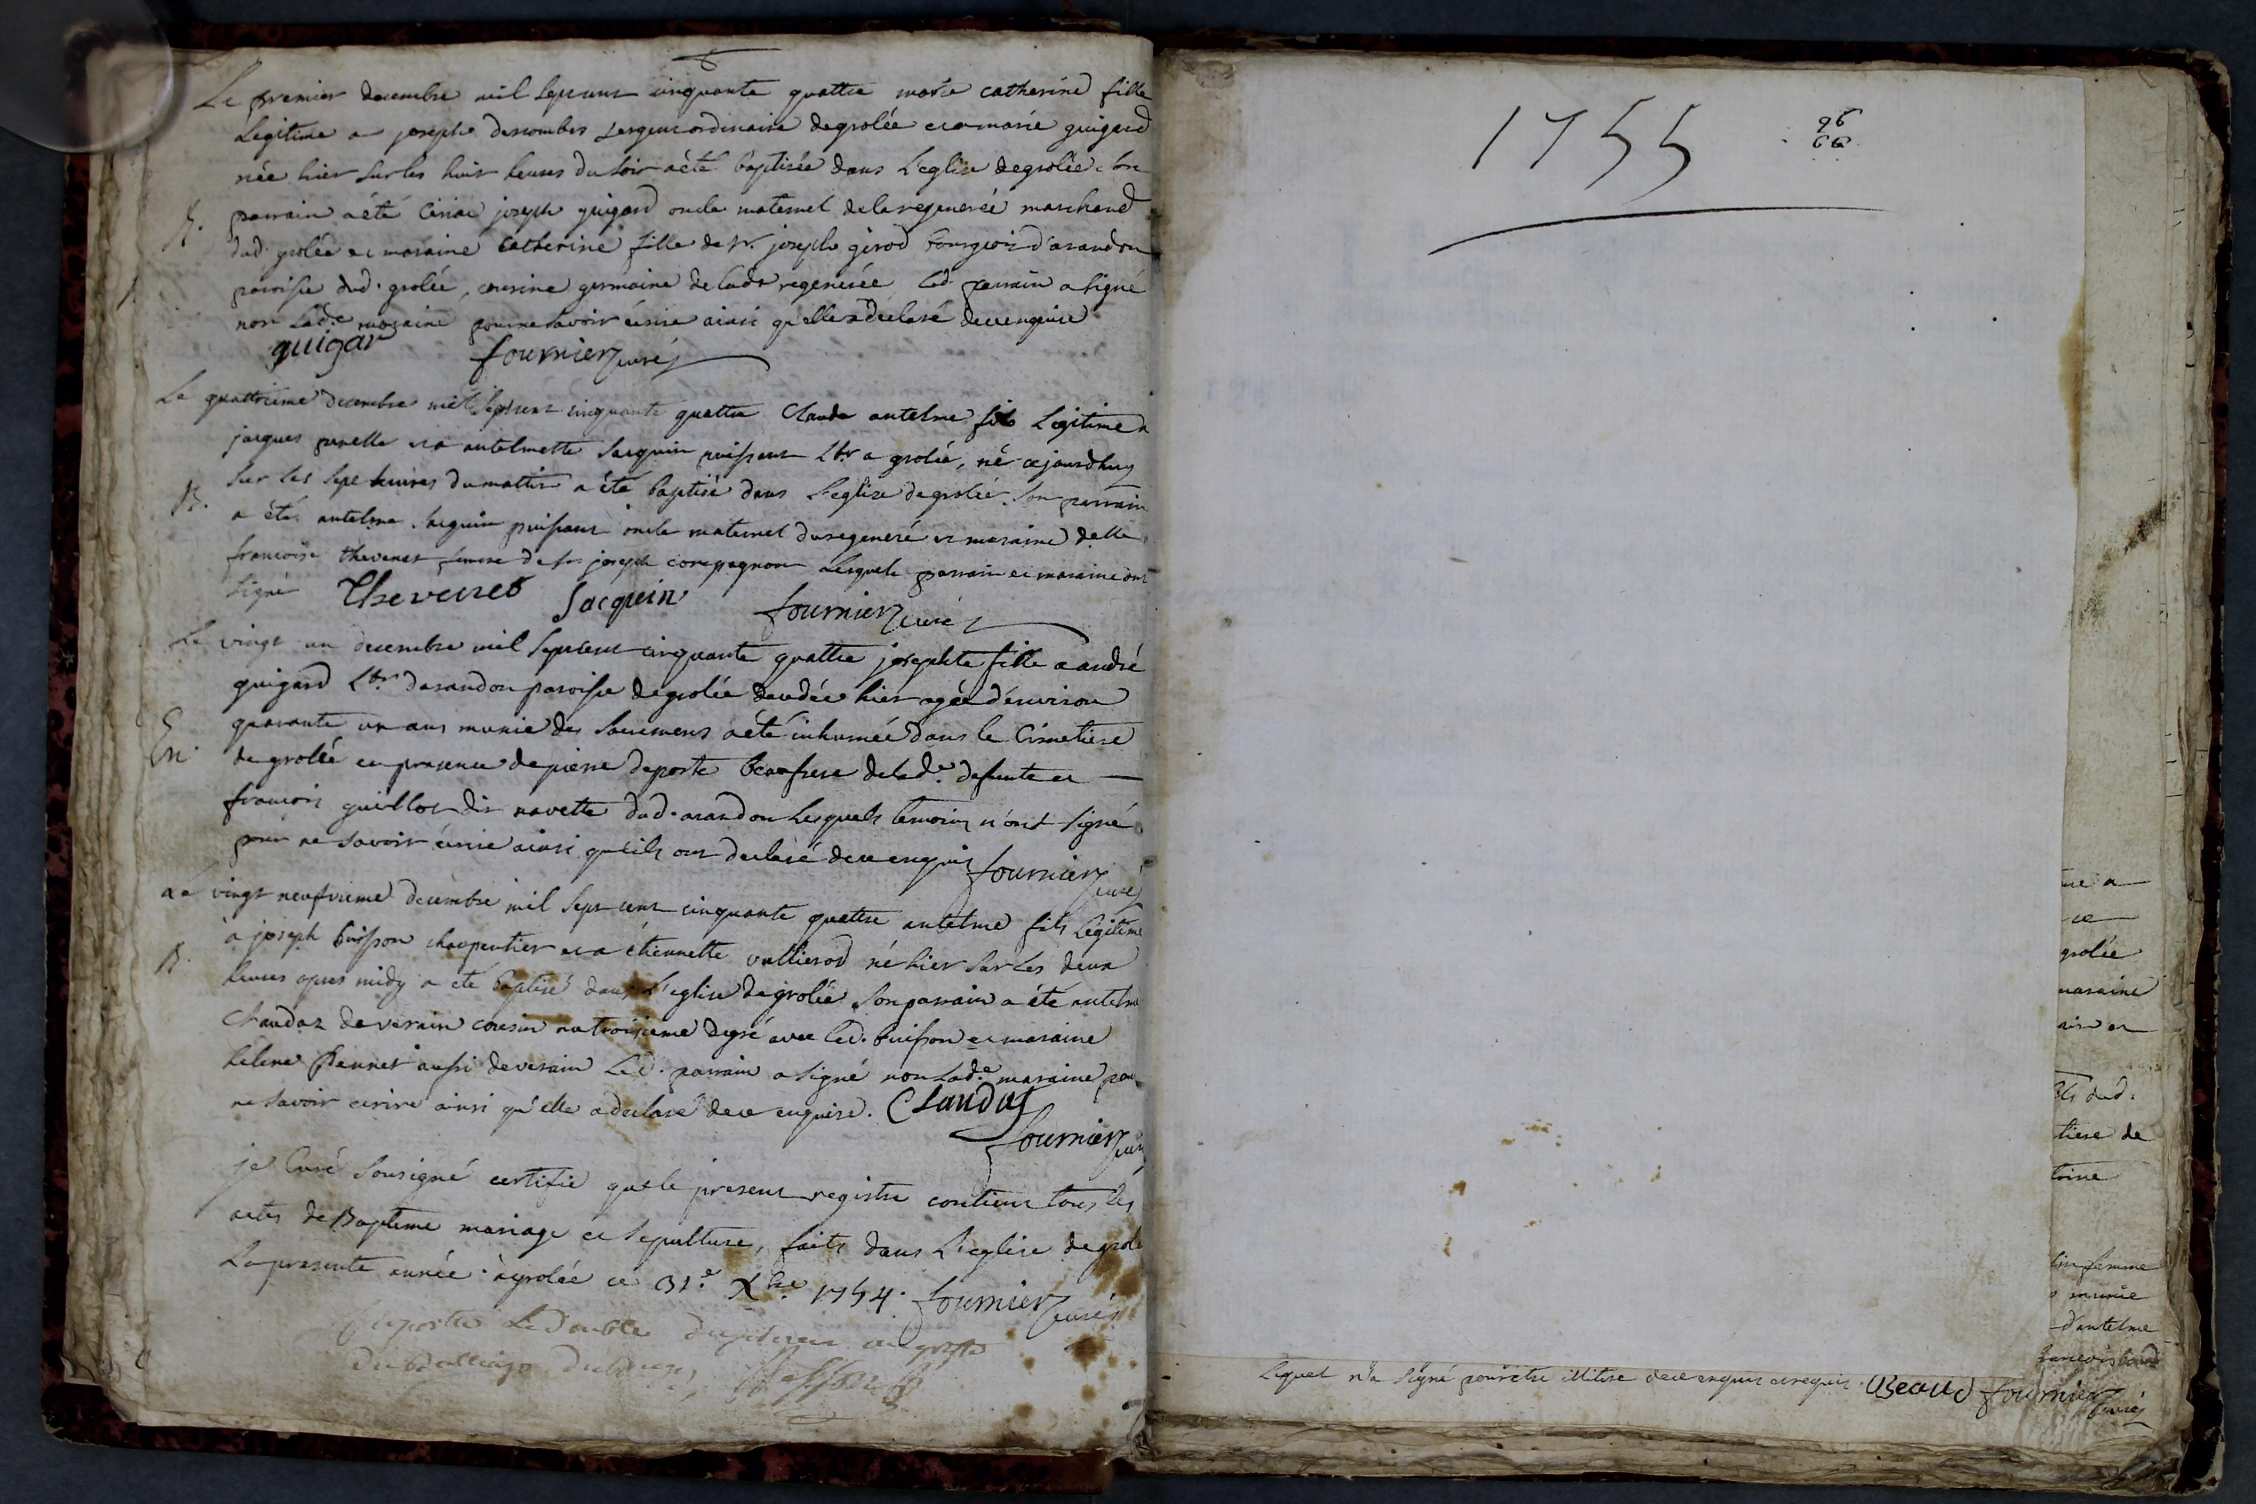 6
Le premier decembre mil sept cent cinquante quattre marie catherine fille
Legitime a joseph descombes sergent ordinaire de grolée et a marie guigard
née hier sur les huit heures du soir a été baptisée dans L'eglise de grolée son
B. parrain a été joseph guigard oncle maternel de la regenerée marchand
dud. grolée et maraine Catherine fille de sr. joseph gerod bourgeois d'arandon
paroisse dud. grolée, cousine germaine de lade regenerée led. parrain a signé
non lade maraine pour ne savoir ecrire ainsi qu'elle a declaré de ce enquise
guigar fournier curé
Le quattrieme decembre mil sept cent cinquante quattre Claude antelme fils Legitime a
jaques et a antelmette Jacquin Lbr a grolée, né cejourdhuy
sur les sept heures du mattin a été baptisé dans L'eglise de grolée. Son parrain
B. a été antelme Jacquin oncle maternel du regeneré et maraine delle
francoise thevenet femme de sr joseph compagnon Lesquels parrain et maraine ont
signé Thevenet Jacquin fournier curé
Le vingt un decembre mil sept cent cinquante quattre josephte fille a andré
guigard Lbr d'arandon paroisse de grolée decedée hier agée d'environ
quarante un ans munie des sacremens a été inhumée dans le Cimetiere
En. de grolée en presence de pierre deporte beaufrere de lade. defunte et
francois guillot dit navette dud. arandon Lesquels temoins n'ont signé
pour ne savoir ecrire ainsi qu'ils ont declaré de ce enquis fournier curé
Le vingt neufvieme decembre mil sept cent cinquante quattre antelme fils Legitime
à joseph buisson charpentier et a étiennette vallierod né hier sur les deux
B. heures apres midy a été baptisé dans L'eglise de grolée son parrain a été antelme
Chaudaz de verain cousin au troisieme degré avec led. buisson et maraine
helene aussi de verain Led. parrain a signé non lade maraine pour
ne savoir ecrire ainsi qu'elle a declaré de ce enquise. Claudaz
fournier curé
je Curé soussigné certifie que le present registre contient tous les
actes de Bapteme mariage et sepulture, faits dans L'eglise de grolé
La presente année. à grolée ce 31e. Xbre. 1754. fournier curé
Le Double au greffe
du Balliage
1755
96
66
ne a
ce
grolée
maraine
dud.
tiere de
toine
femme
munie
d'antelme
francois
Lequel n'a signé pour etre illitere de ce enquis et requis. Beaud fournier curé